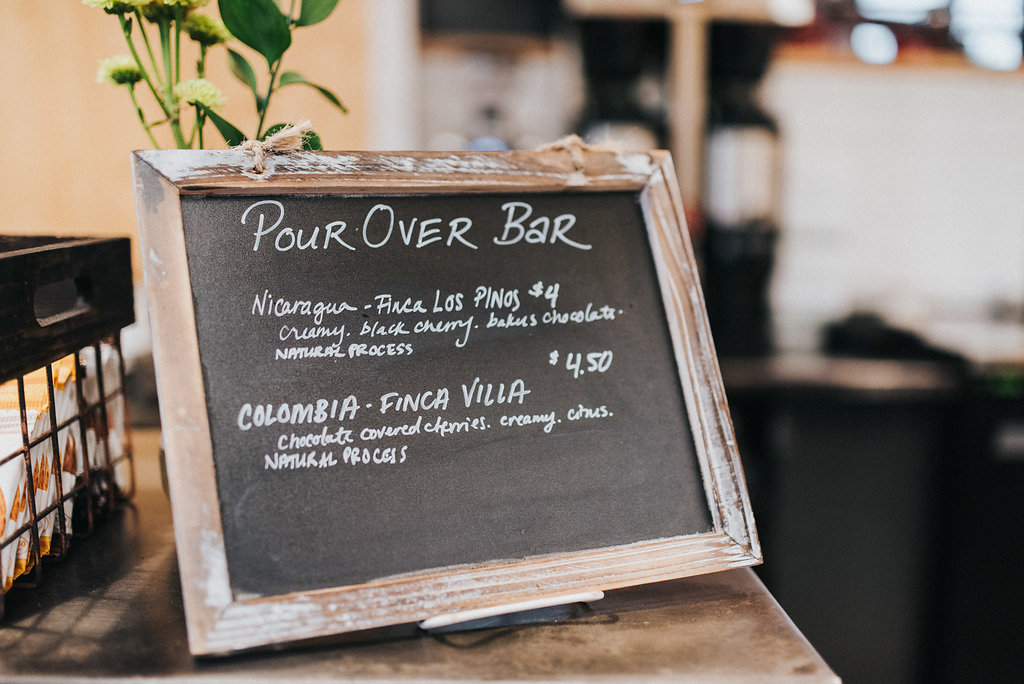 Pour Over Bar
Nicaragua - Finca Los Pinos $4
creamy. black cherry. bakers chocolate.
NATURAL PROCESS
$4.50
COLOMBIA - FINCA VILLA
chocolate covered cherries. creamy. citrus.
NATURAL PROCESS